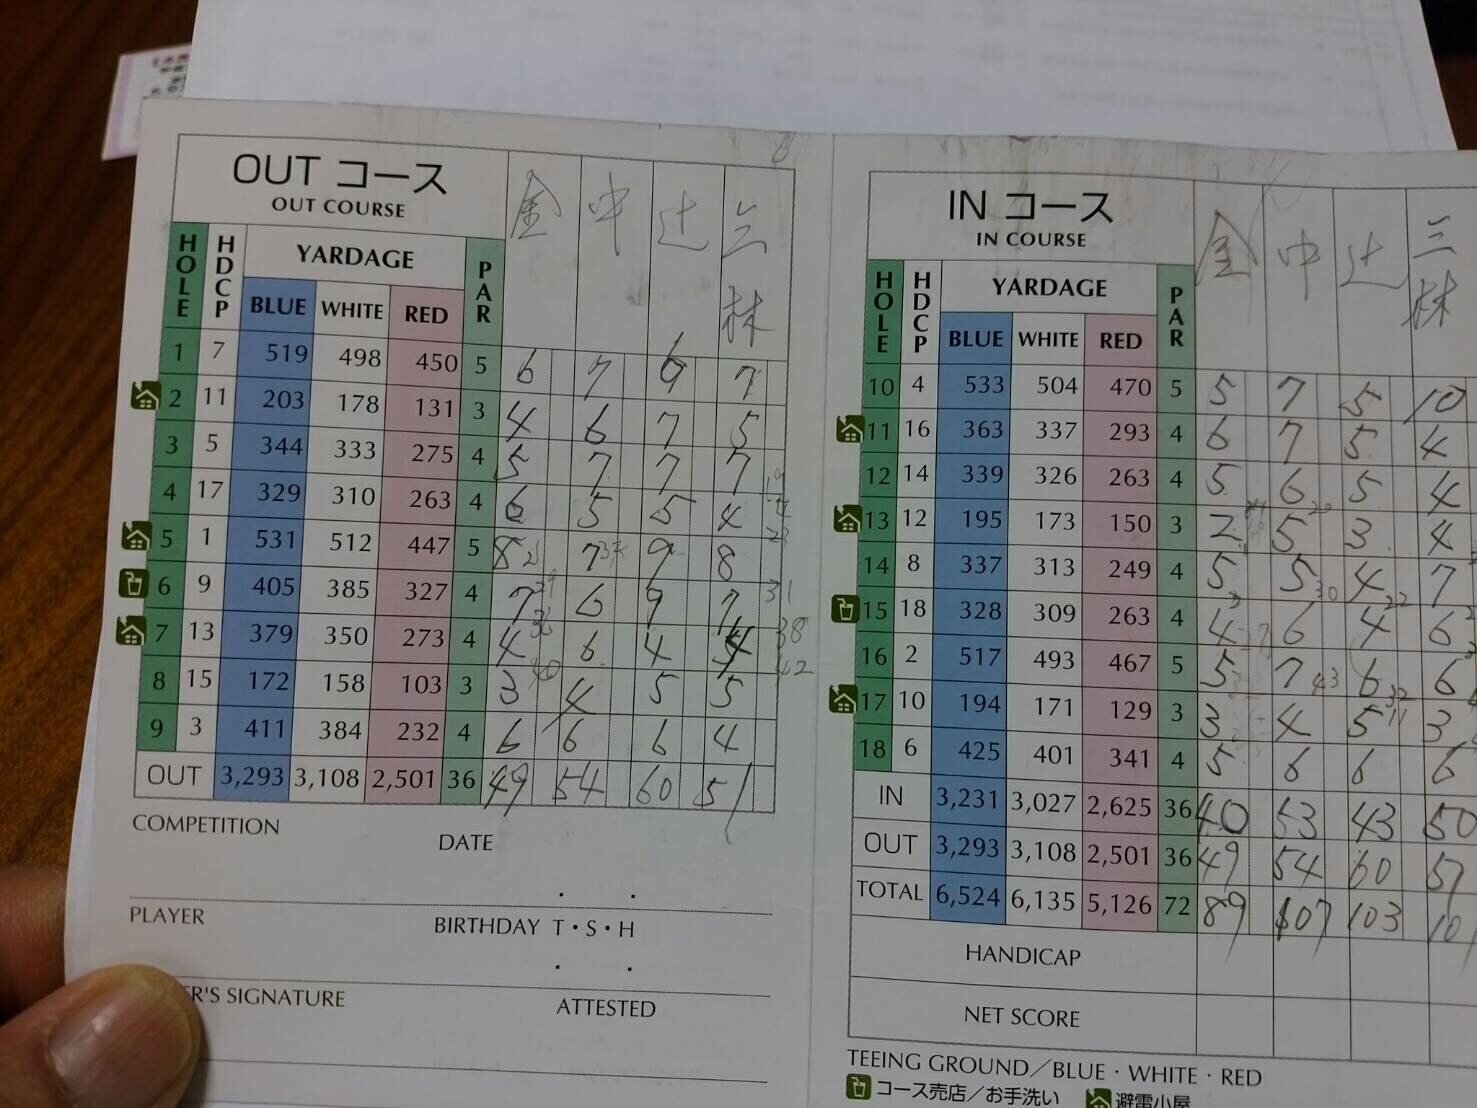 OUT コース
OUT COURSE
金 中 辻 三林
HOLE HDCP YARDAGE PAR
BLUE WHITE RED
1 7 519 498 450 5 6 7 7
2 11 203 178 131 3 4 6 7 5
3 5 344 333 275 4 5 7 7 7
4 17 329 310 263 4 6 5 5 4
5 1 531 512 447 5 8 7 9 8
6 9 405 385 327 4 7 6 9 7 31
7 13 379 350 273 4 4 6 4 38
8 15 172 158 103 3 3 4 5 5 42
9 3 411 384 232 4 6 6 6 4
OUT 3,293 3,108 2,501 36 49 54 60 51
COMPETITION DATE
PLAYER BIRTHDAY T・S・H
ER'S SIGNATURE ATTESTED
IN コース
IN COURSE
金 中 辻 三林
HOLE HDCP YARDAGE PAR
BLUE WHITE RED
10 4 533 504 470 5 5 7 5 10
11 16 363 337 293 4 6 7 5 4
12 14 339 326 263 4 5 6 5 4
13 12 195 173 150 3 2 5 3 4
14 8 337 313 249 4 5 5 30 4 22 7
15 18 328 309 263 4 4 6 4 6
16 2 517 493 467 5 5 7 43 6 32 6
17 10 194 171 129 3 3 4 5 3
18 6 425 401 341 4 5 6 6 6
IN 3,231 3,027 2,625 36 40 53 43 50
OUT 3,293 3,108 2,501 36 49 54 60 51
TOTAL 6,524 6,135 5,126 72 89 107 103 101
HANDICAP
NET SCORE
TEEING GROUND／BLUE・WHITE・RED
コース売店／お手洗い 避雷小屋